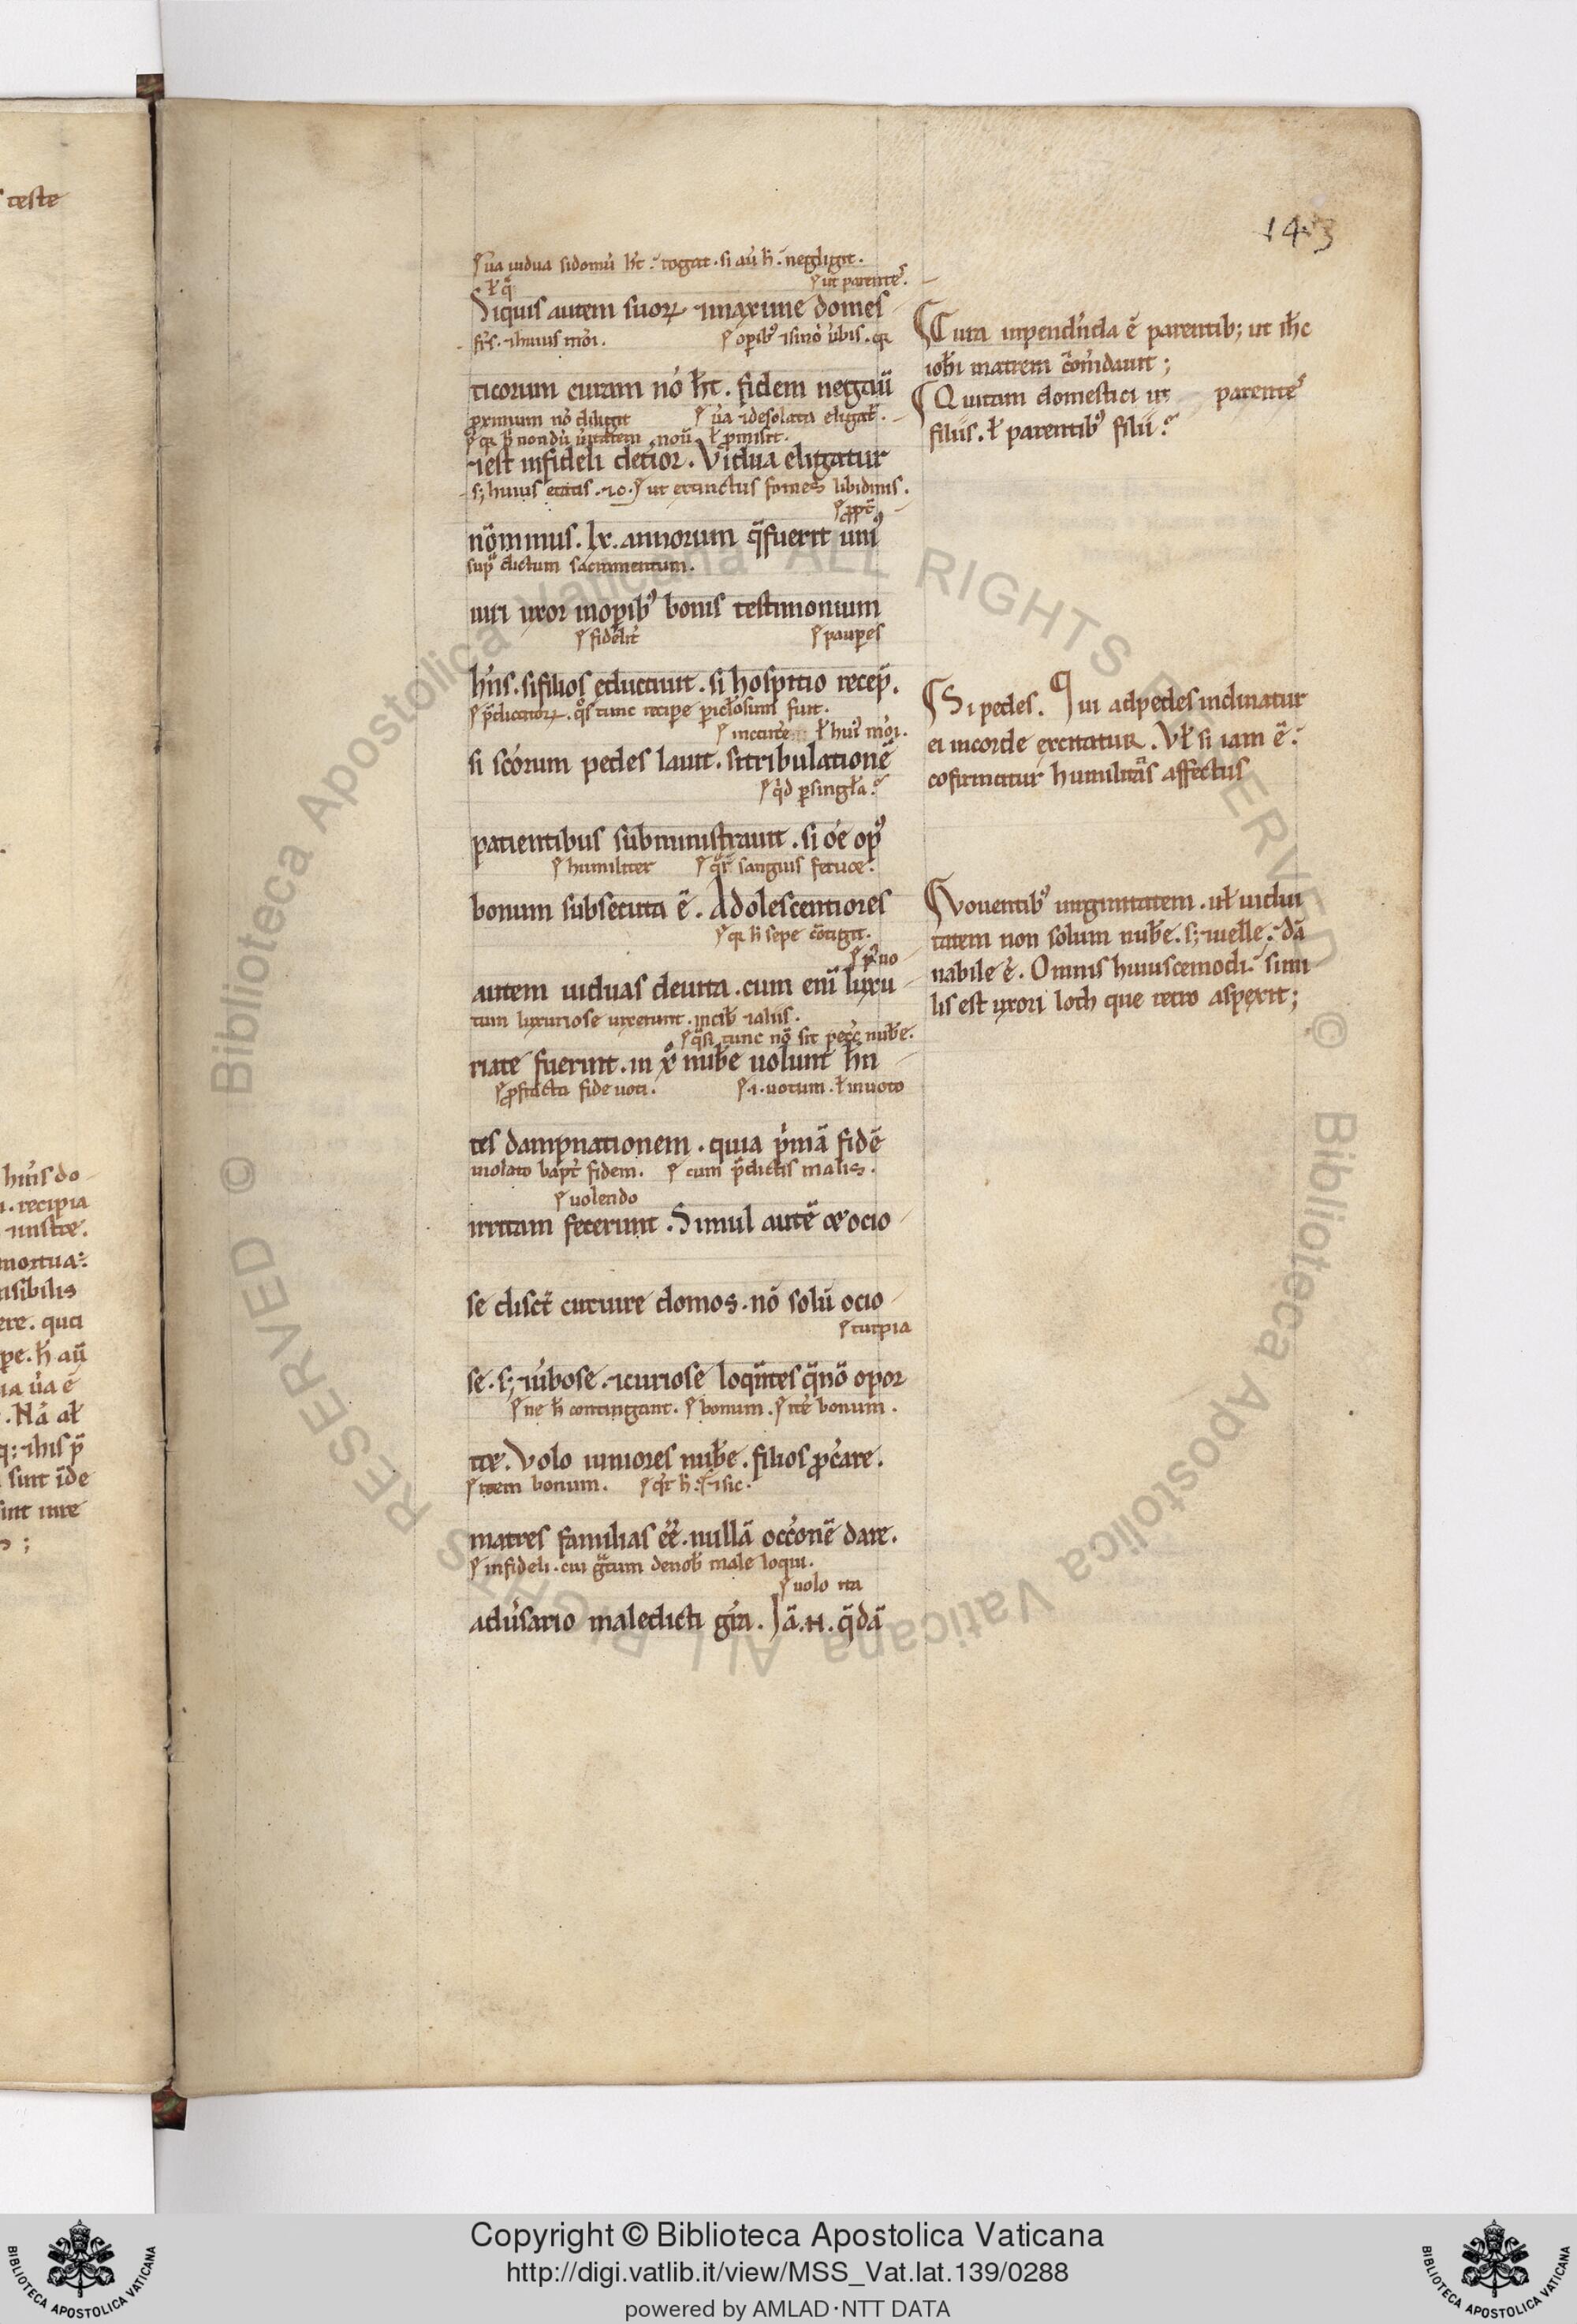 ꝛteste
143
ua uidua si domū h̄t. rogat. si aū h̄. negligit.
ut parentes.
ł q̄
Siquis autem suoꝝ ⁊ maxime domes
fr̄s. ⁊ huius mōi. opib⁹ ⁊ si nō ūbis. qꝛ
ticorum curam nō h̄t. fidem negaū
proximum nō diligit ūa ⁊ desolata eligat̄.
⁊ est infideli deterior. Vidua eligatur
s; huius etatis. ut extinctus fomes libidinis.
nō minus. lx. annorum q̄ fuerit uni⁹
sup̄ dictum sacramentum.
uiri uxor in opib⁹ bonis testimonium
fidelit̄ paupes
hn̄s. si filios educauit. si hospitio recep̄.
p̄dicatoꝝ. q̊s tunc recipe piclosum fuit.
ł hui⁹ mōi.
si sc̄orum pedes lauit. si tribulationē
qd̄ p singl̄a.
patientibus subministrauit. si oē op⁹
humiliter qr̄ sanguis feruet.
bonum subsecuta ē. Adolescentiores
qꝛ h̄ sepe cōtigit.
autem uiduas deuita. cum enī luxu
tum luxuriose uixerunt. in cib̄ ⁊ aliis.
q̄si tunc nō sit pecc̄ nub̄e.
riate fuerint. in xp̊ nub̄e uolunt hn̄
p fracta fide uoti. .i. uotum. ł in uoto
tes dampnationem. quia p̄mā fidē
uiolato bapt̄ fidem. cum p̄dictis malis.
uolendo
irritam fecerunt. Simul autē ⁊ ocio
se disct̄ circuire domos. nō solū ocio
turpia
se. s; ⁊ ūbose. ⁊ curiose loq̄ntes q̄ nō opor
ne h̄ contingant. bonum. itē bonum.
tet. Volo iuniores nub̄e. filios ꝓc̄are.
item bonum. qr̄ h̄. ⁊ sic.
matres familias eē. nullā occōnē dare.
infideli. cui gr̄tum de nob̄ male loqui.
uolo ita
adūsario maledicti gr̄a. Iā. N. q̄dā
Cura inpendn̄da ē parentib; ut ih̄c
ioh̄i matrem cōm̄dauit;
Quitam domestici ut parentes
filiis. ł parentib⁹ filii.
Si pedes. Qui ad pedes inclinatur
ei in corde excitatur. Vł si iam ē.
cofirmatur humilitatis affectus
Vouentib⁹ uirginitatem. uł uidui
tatem non solum nub̄e. s; ⁊ uelle. dā
nabile ē. Omnis huiuscemodi. simi
lis est uxori loth que retro aspexit;
hn̄s do
recipia
mortua:
nsibilis
ere. qua
pe. h̄ aū
ia ūa ē
Nā al̄
q: ⁊ his p̄
sunt in̄de
sint iure
Copyright © Biblioteca Apostolica Vaticana
http://digi.vatlib.it/view/MSS_Vat.lat.139/0288
powered by AMLAD·NTT DATA
BIBLIOTECA APOSTOLICA VATICANA
BIBLIOTECA APOSTOLICA VATICANA
© Biblioteca Apostolica Vaticana ALL RIGHTS RESERVED © Biblioteca Apostolica Vaticana ALL RIGHTS RESERVED